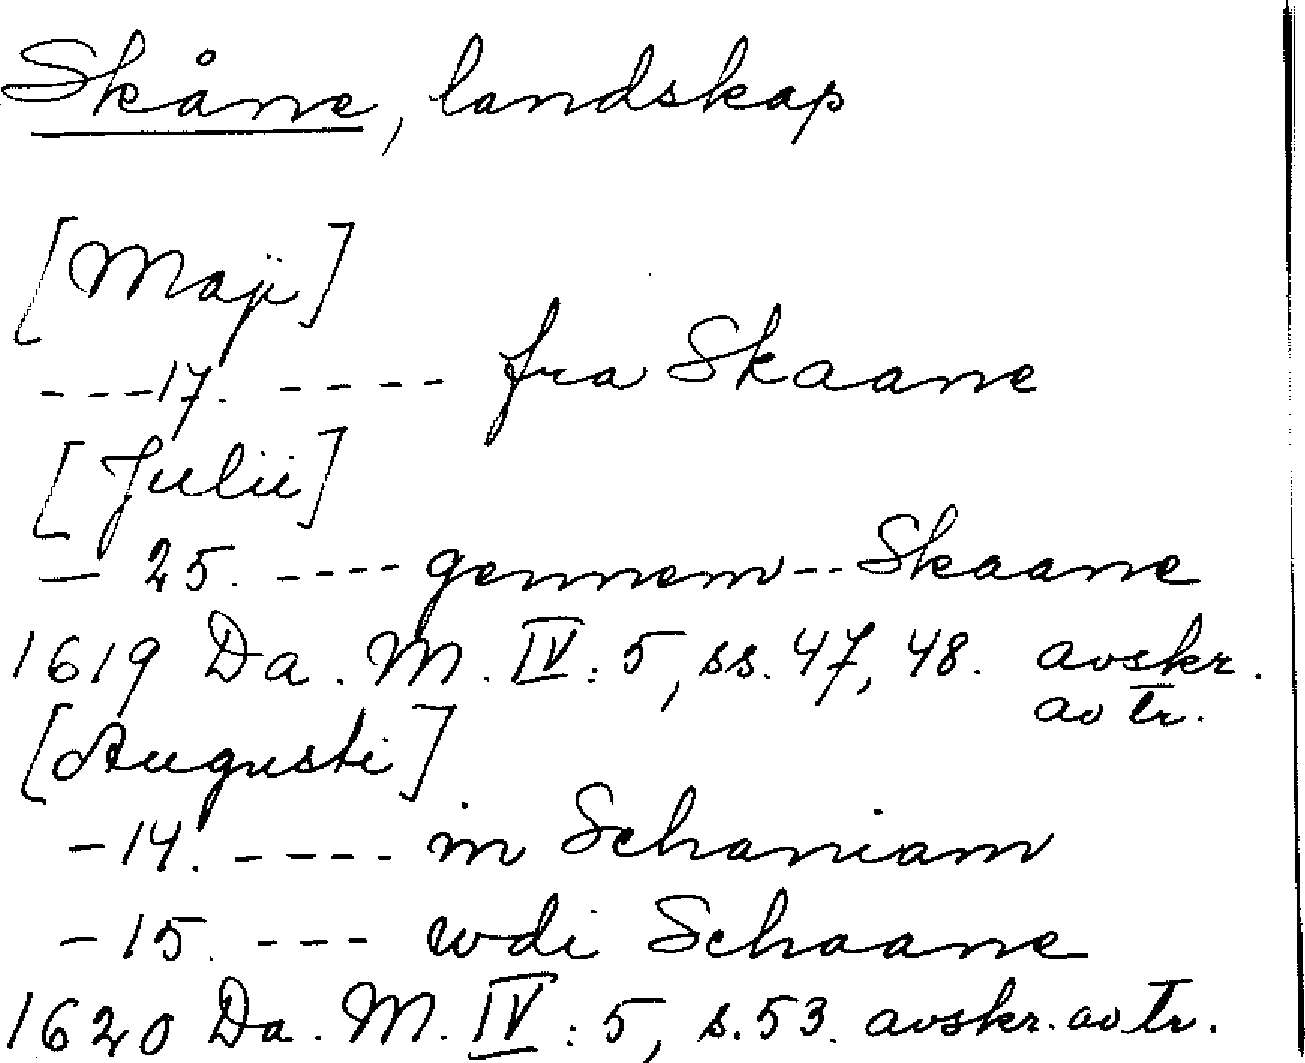 Skåne, landskap
[Maji]
---17. ---- fra Skaane
[Julii]
- 25. ---- gennem -- Skaane
1619 Da. M. IV: 5, ss. 47, 48. avskr.
av tr.
[Augusti]
-14. ---- in Schaniam
-15. --- wdi Schaane
1620 Da. M. IV: 5, s. 53. avskr. av tr.